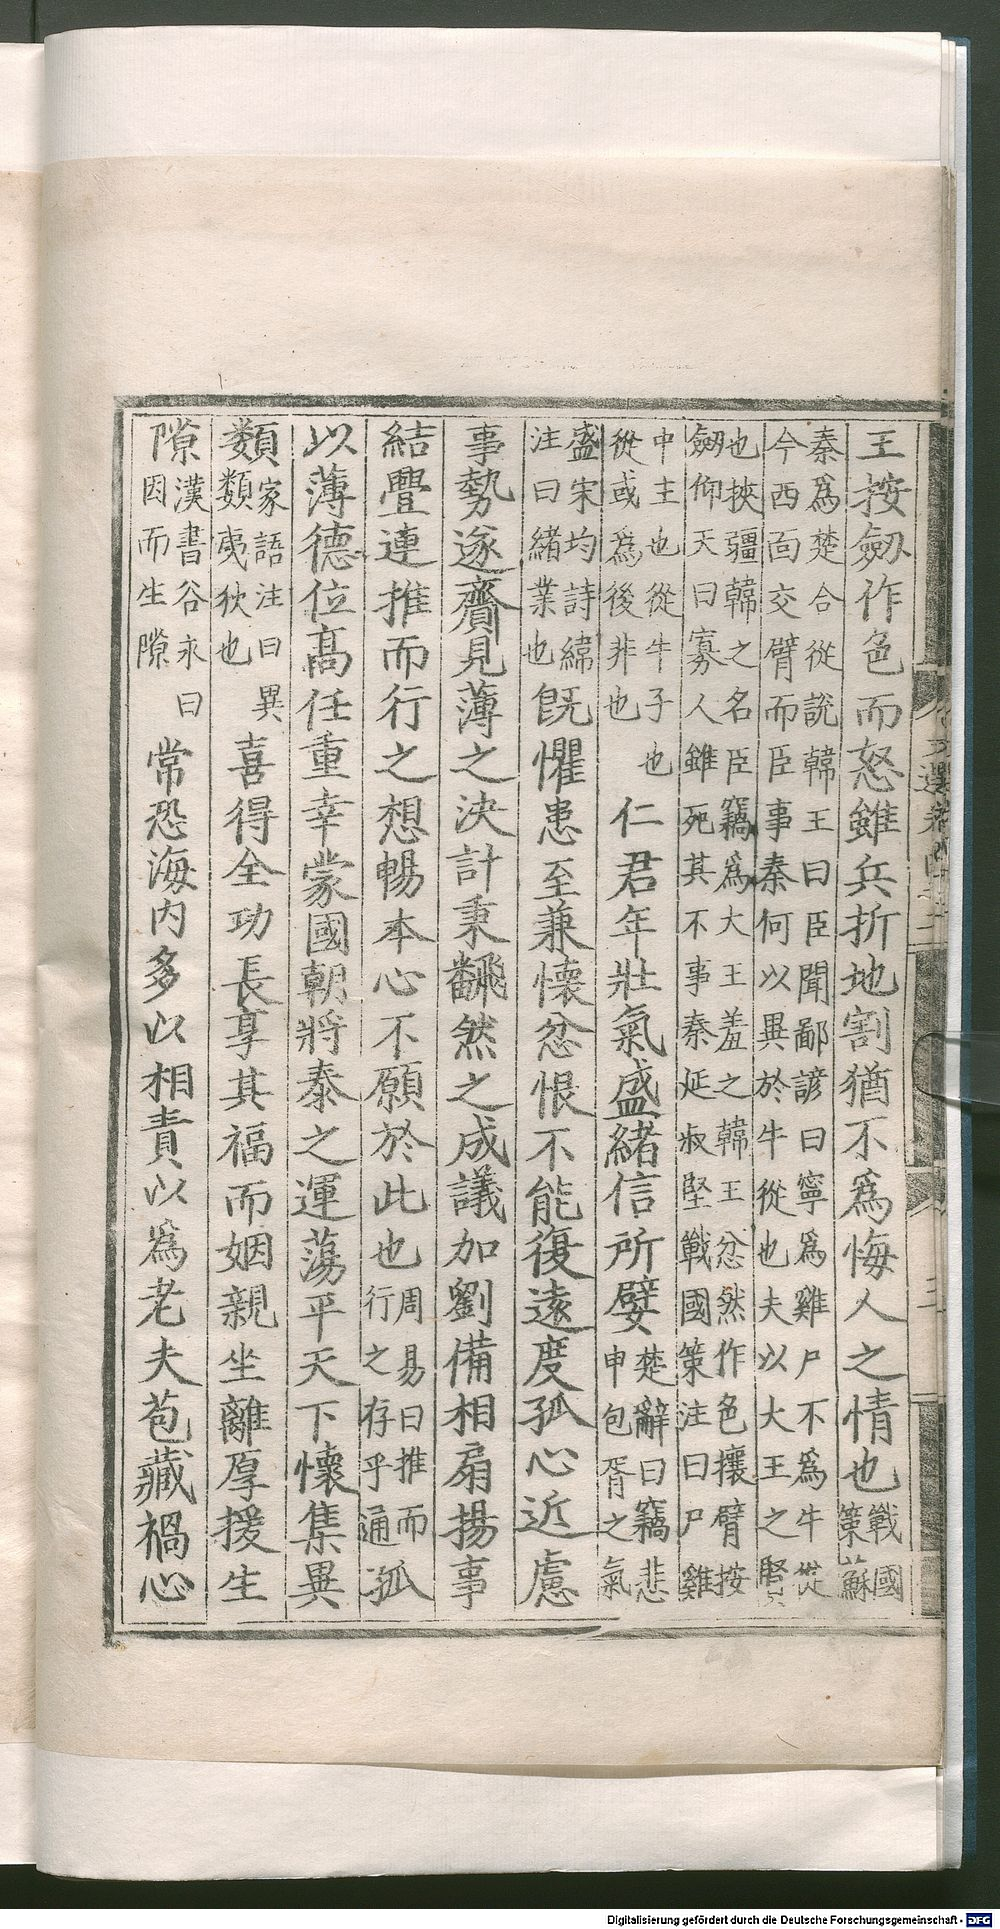 王按劒作色而怒雖兵折地割猶不爲悔人之情也戰國策蘇
秦爲楚合從說韓王曰臣聞鄙諺曰寧爲雞尸不爲牛從
今西靣交臂而臣事秦何以異於牛從也夫以大王之賢
也挾彊韓之名臣竊爲大王羞之韓王忿然作色攘臂按
劒仰天曰寡人雖死其不事秦延叔堅戰國策注曰尸雞
中主也從牛子也從或爲後非也仁君年壯氣盛緒信所嬖楚辭曰竊悲申包胥之氣
盛宋均詩緯注曰緒業也既懼患至兼懷忿恨不能復遠度孤心近慮
事勢遂齎見薄之決計秉飜然之成議加劉備相扇揚事
結疊連推而行之想暢本心不願於此也周易曰推而行之存乎通孤
以薄德位高任重幸蒙國朝將泰之運蕩平天下懷集異
類家語注曰異類夷狄也喜得全功長享其福而姻親坐離厚援生
隙漢書谷永曰因而生隙常恐海內多以相責以爲老夫苞藏禍心
文選卷四十二
三
Digitalisierung gefördert durch die Deutsche Forschungsgemeinschaft - DFG